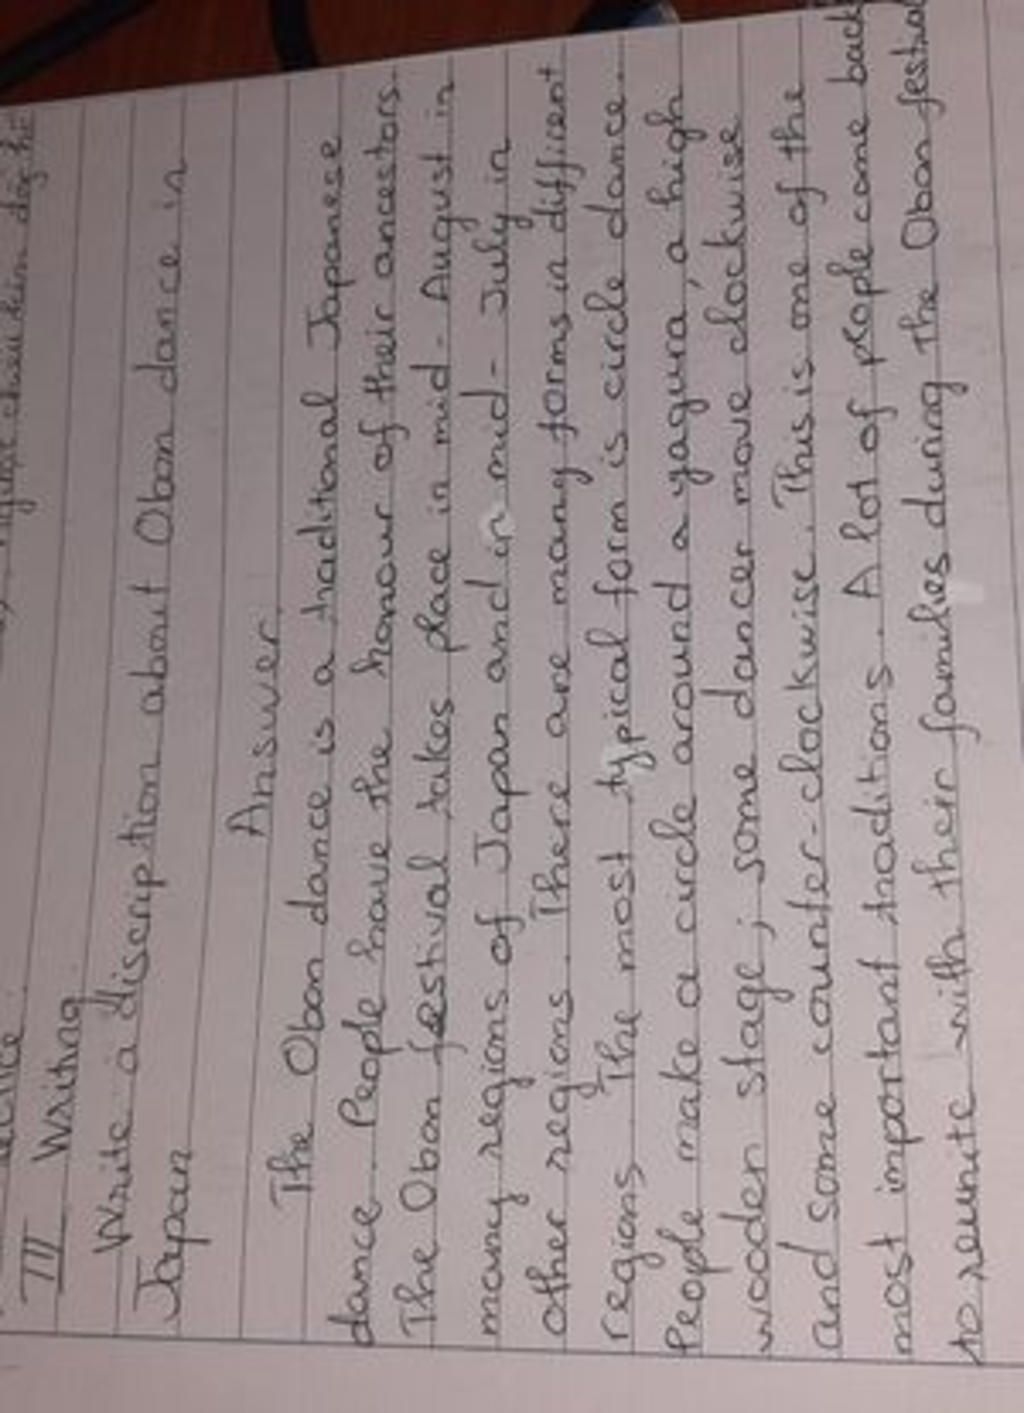 III Writing
Write a discription about Obon dance in
Japan
Answer
The Obon dance is a traditional Japanese
dance. People have the honour of their ancestors.
The Obon festival takes place in mid-August in
many regions of Japan and in mid-July in
other regions. There are many forms in difficent
regions. The most typical form is circle dance.
People make a circle around a yagura, a high
wooden stage; some dancer move clockwise
and some counter-clockwise. This is one of the
most important traditions. A lot of people come back
to reunite with their families during the Obon festival